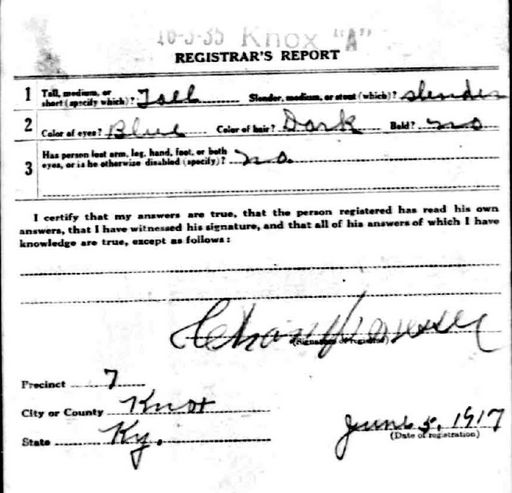 16-3-35 Knox "A"
REGISTRAR'S REPORT
1 Tall, medium, or short (specify which)? Tall Slender, medium, or stout (which)? slender
2 Color of eyes? Blue Color of hair? Dark Bald? no
3 Has person lost arm, leg, hand, foot, or both eyes, or is he otherwise disabled (specify)? no.
I certify that my answers are true, that the person registered has read his own
answers, that I have witnessed his signature, and that all of his answers of which I have
knowledge are true, except as follows:
(Signature of registrar)
Precinct 7
City or County Knox
State Ky.
June 5, 1917
(Date of registration)